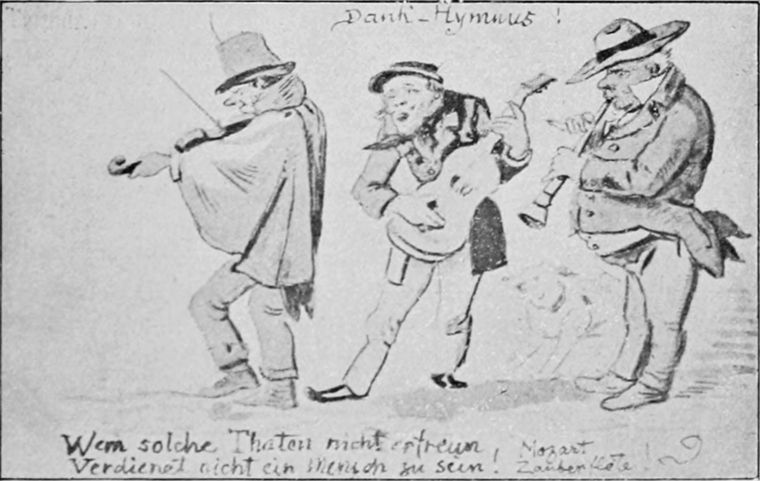 Dank-Hymnus !
Wem solche Thaten nicht erfreun,
Verdienet nicht ein Mensch zu sein!
Mozart
Zauberflöte!